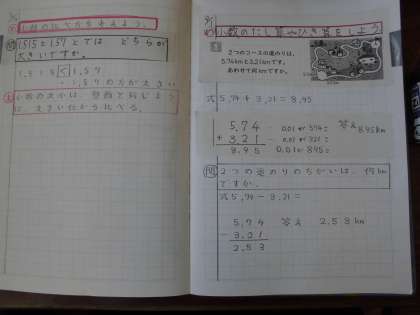 小数の大小の比べ方を考えよう。
問 1.515と1.57とでは どちらが
大きいですか。
1.515 < 1.57
1.57の方が大きい
小数の大小は、整数と同じよう
に、大きい位から比べる。
小数のたし算やひき算をしよう
2つのコースの道のりは、
5.74kmと3.21kmです。
あわせて何kmですか。
式 5.74+3.21=8.95
5.74 0.01が574こ 答え 8.95km
+3.21 0.01が321こ
8.95 0.01が895こ
2つの道のりのちがいは、何km
ですか。
式 5.74-3.21=
5.74 答え 2.53km
-3.21
2.53